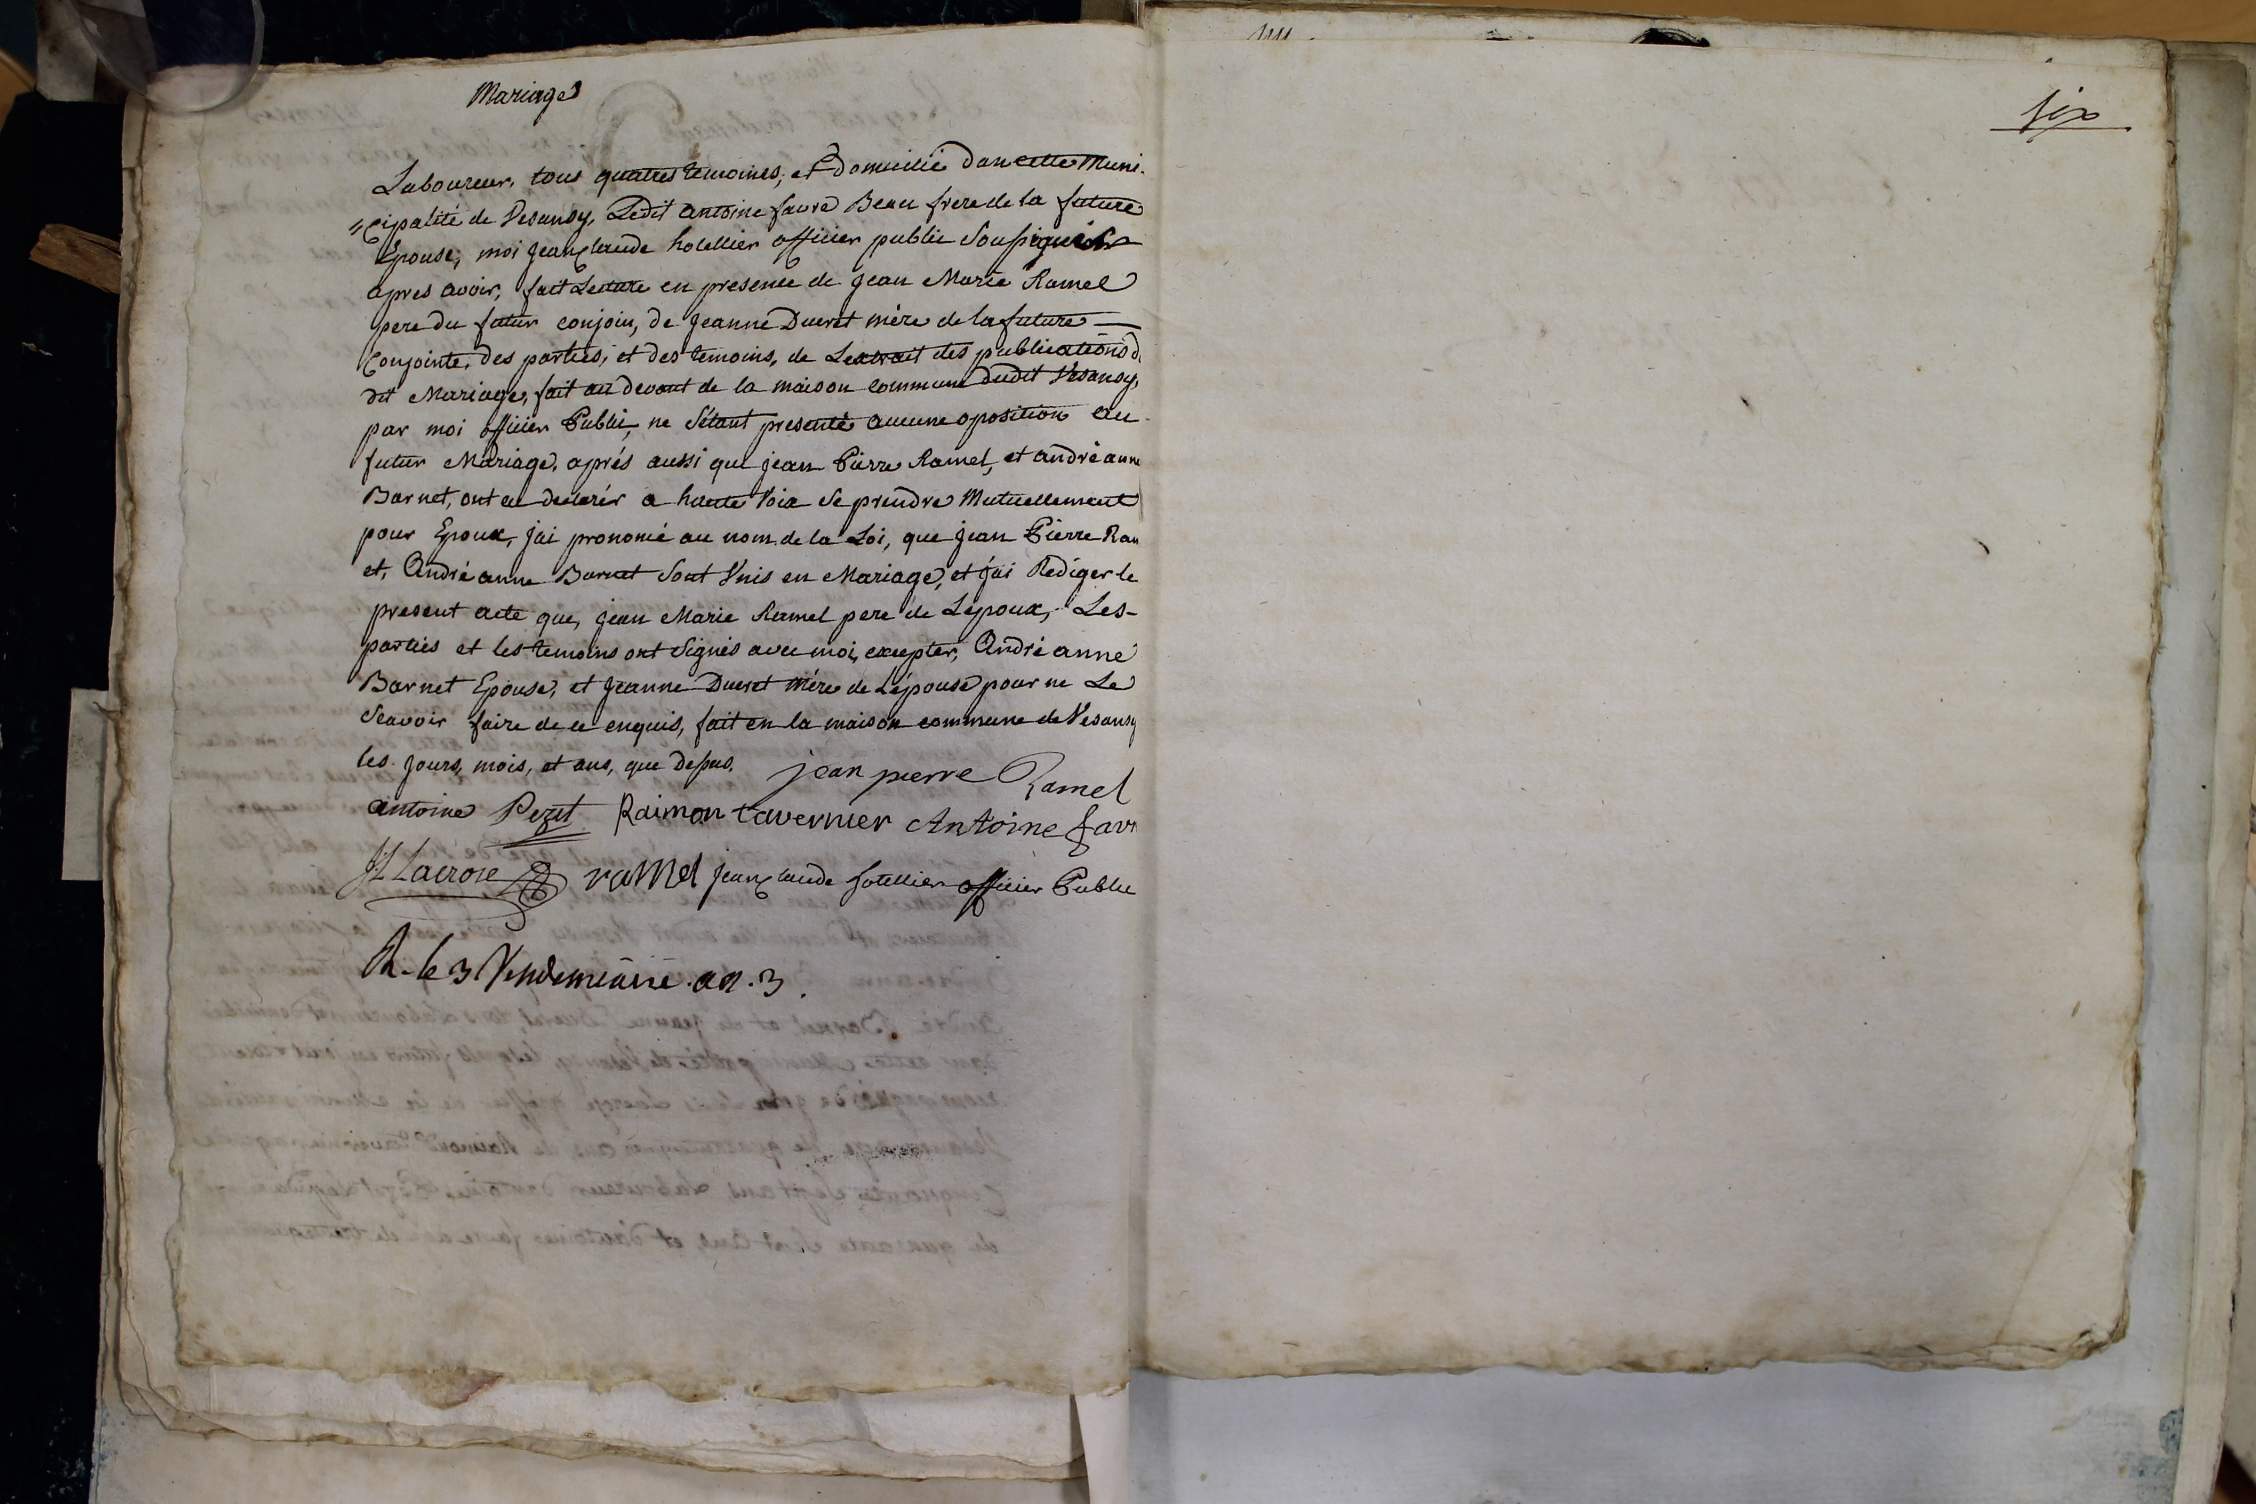 Mariage
Laboureur, tous quatres temoines, et domicilié dan cette Muni-
=cipalité de Vesansy, Ledit antoine favre Beau frere de la future
Epouse, moi jean claude hotellier officier public Soussigné
apres avoir, fait Lecture en presence de jean Marie Ramel
pere du futur conjoin, de jeanne Ducret mère de la future
Conjointe, des parties, et des temoins, de Lextrait des publications d
dit Mariage, fait au devant de la maison commune dudit Vesansy,
par moi officier Public, ne Sétant presenté aucune oposition au
futur Mariage, aprés aussi que jean Pierre Ramel, et andré anne
Barnet, ont eu declarér a haute Voix Se prendre Mutuellement
pour Epoux, jai prononcé au nom de la Loi, que jean Pierre Ram
et, André anne Barnet Sont Unis en Mariage, et jai Rediger le
present acte que, jean Marie Ramel pere de Lépoux, Les-
parties et les temoins ont Signés avec moi, excepter, André anne
Barnet Epouse, et jeanne Ducret Mére de Lépouse pour ne Le
Scavoir faire de ce enquis, fait en la maison commune de Vesansy
les jours, mois, et ans, que dessus. jean pierre Ramel
antoine Pezit Raimon tavernier Antoine favr
JL Lacroix ramel jean claude hotellier officier Public
R. le 3 Vendemiaire. an. 3.
six